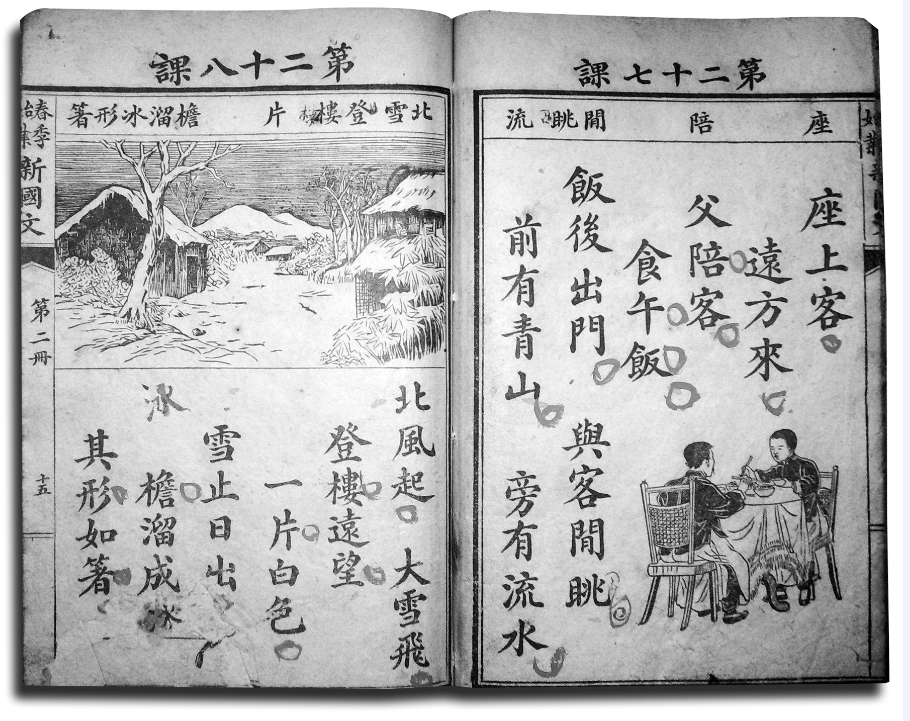 第二十七課
座 陪 閒眺 流
座上客
遠方來
父陪客
食午飯
飯後出門 與客閒眺
前有青山 旁有流水
第二十八課
北雪登樓 片 檐溜冰形箸
北風起 大雪飛
登樓遠望
一片白色
雪止日出
檐溜成冰
冰
其形如箸
春季始業
新國文
第二冊
十五